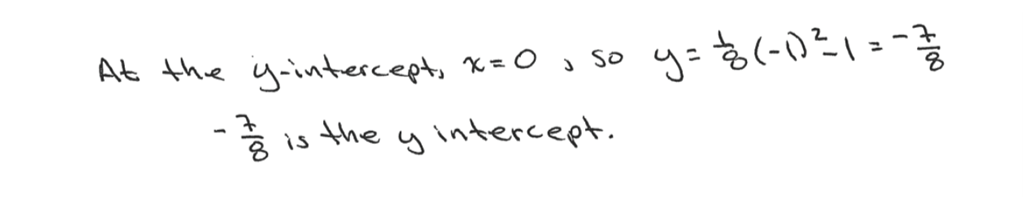 At the y-intercept, x=0, so y=⅛(-1)²-1=-⅞
-⅞ is the y intercept.